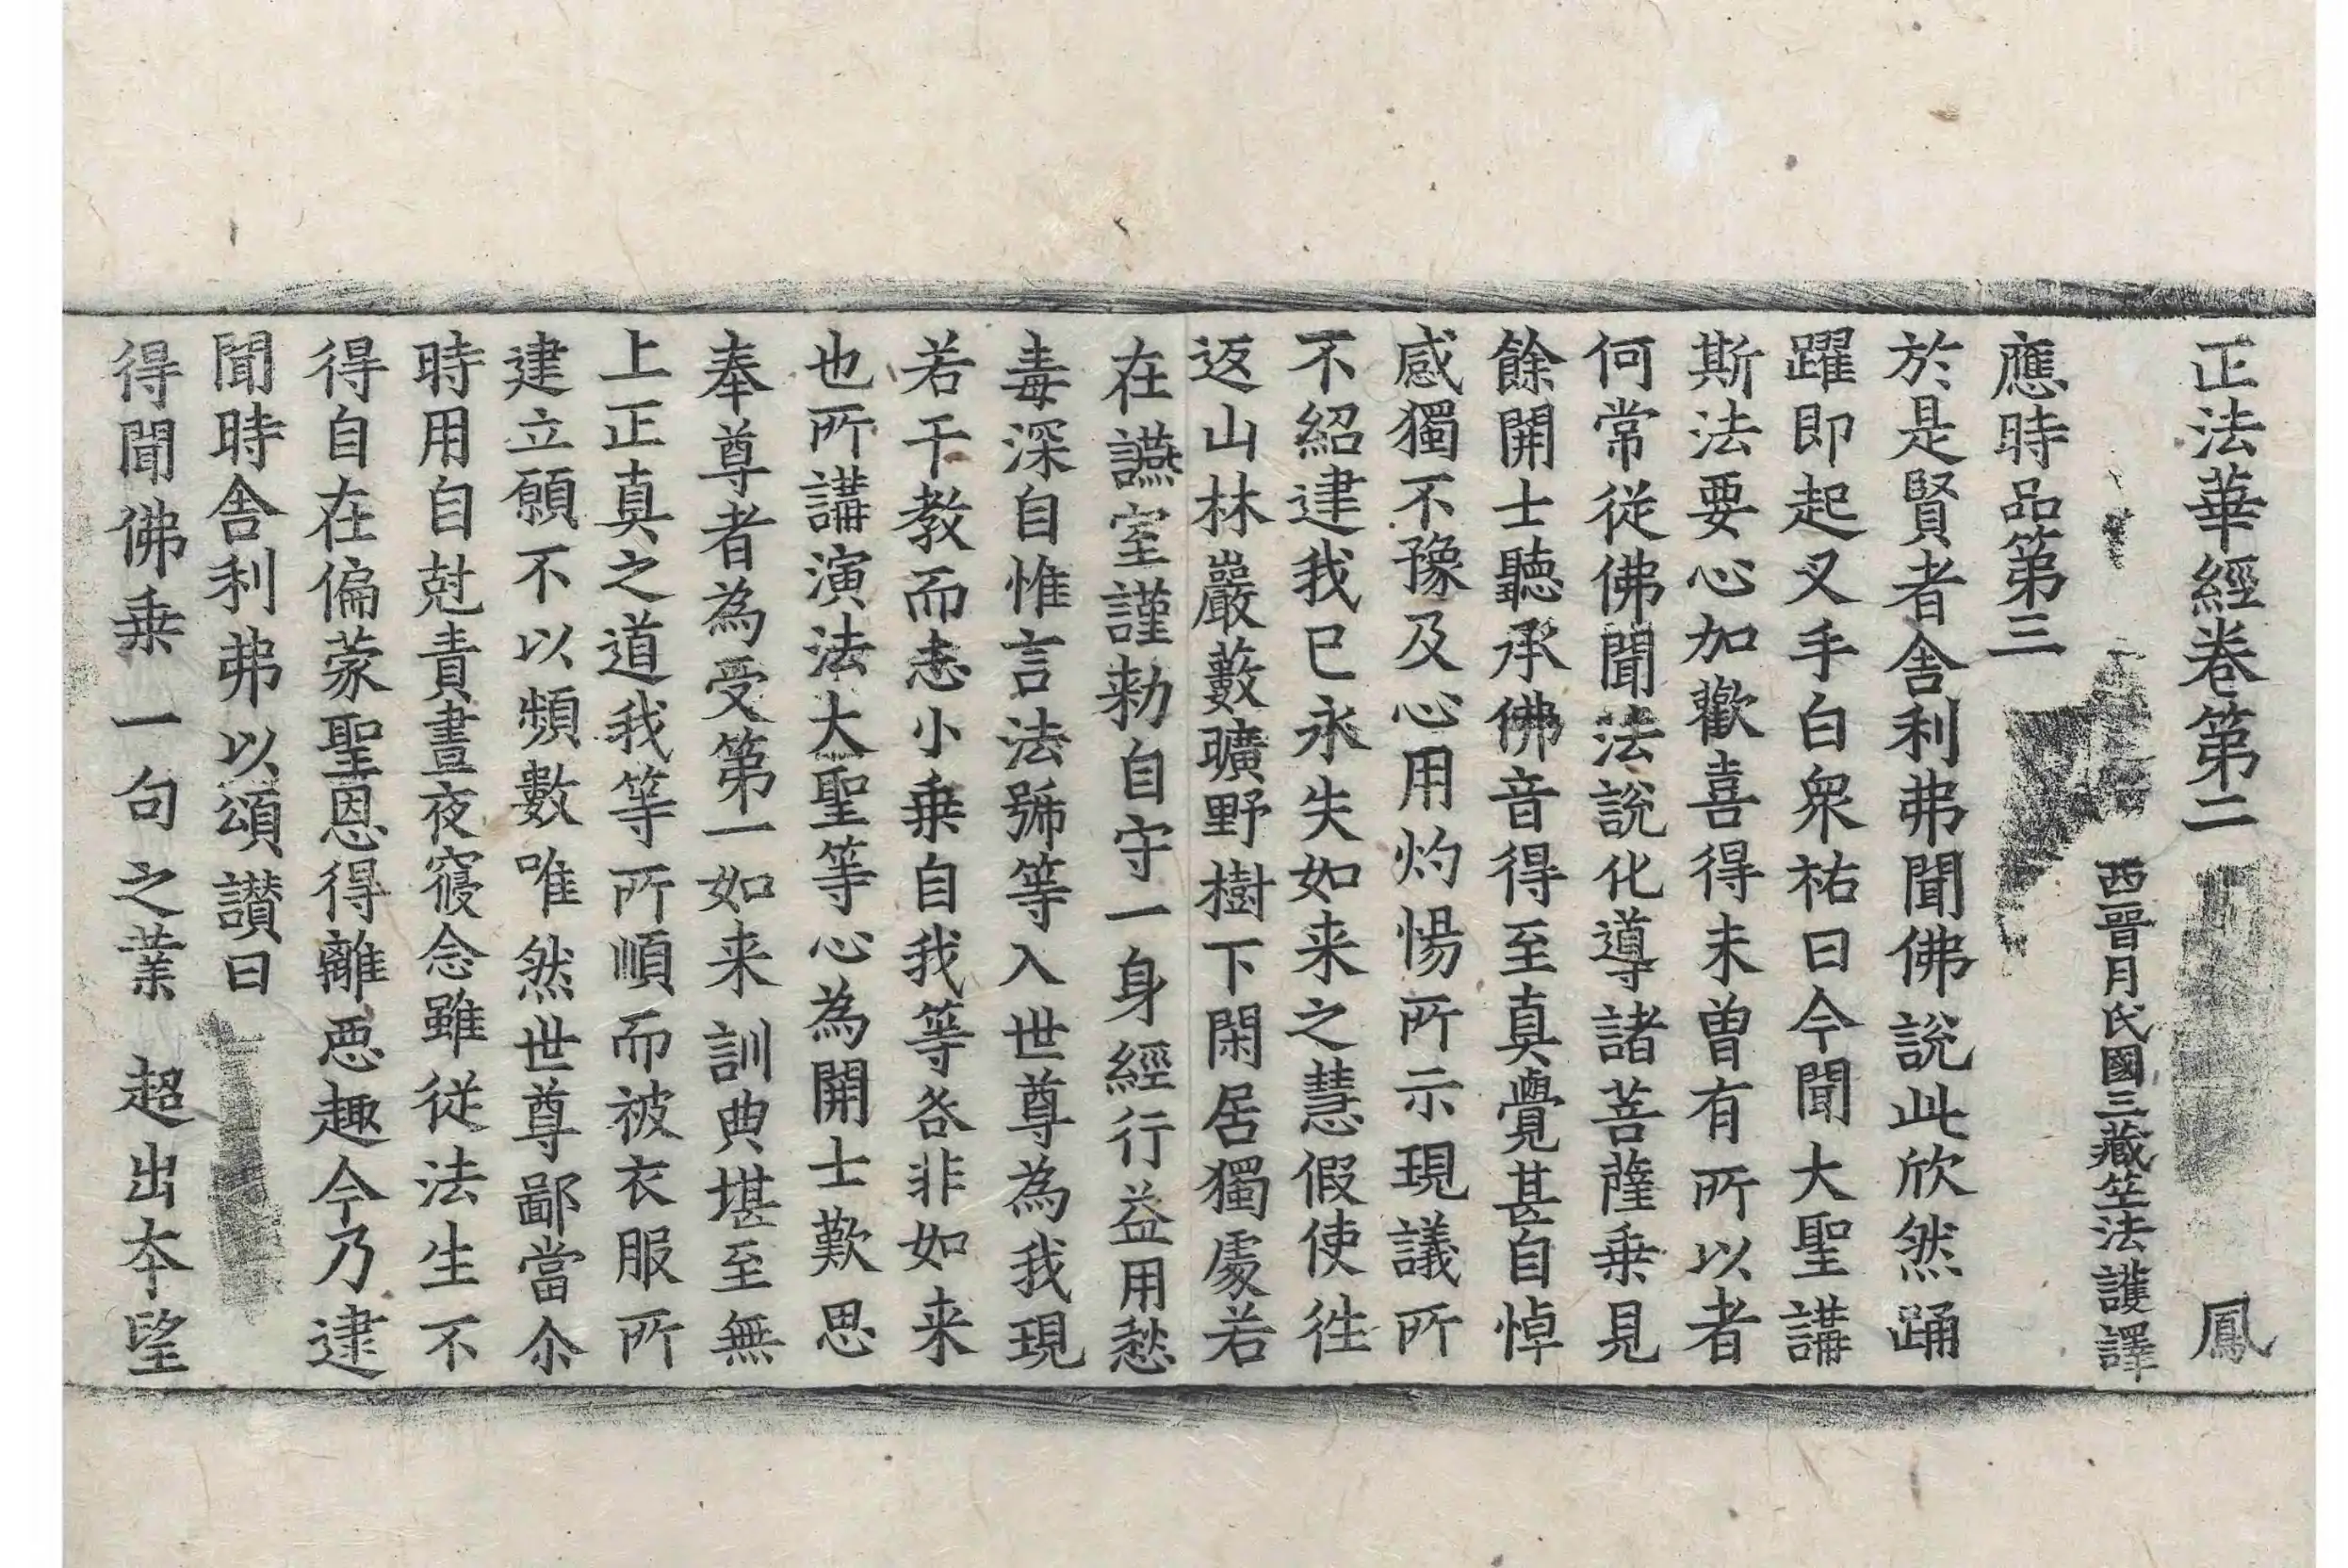 正法華經卷第二 鳳
西晉月氏國三藏竺法護譯
應時品第三
於是賢者舎利弗聞佛說此欣然踊
躍即起叉手白衆祐曰今聞大聖講
斯法要心加歡喜得未曽有所以者
何常從佛聞法說化導諸菩薩乗見
餘開士聽承佛音得至真覺甚自悼
感獨不豫及心用灼惕所示現議所
不紹逮我已永失如来之慧假使徃
返山林巖藪曠野樹下閑居獨處若
在讌室謹勑自守一身經行益用愁
毒深自惟言法號等入世尊為我現
若干教而志小乗自我等咎非如来
也所講演法大聖等心為開士歎思
奉尊者為受第一如来訓典堪至無
上正真之道我等所順而被衣服所
建立願不以頻數唯然世尊鄙當尒
時用自尅責晝夜寢念雖從法生不
得自在偏蒙聖恩得離惡趣今乃逮
聞時舎利弗以頌讃曰
得聞佛乗一句之業 超出本望